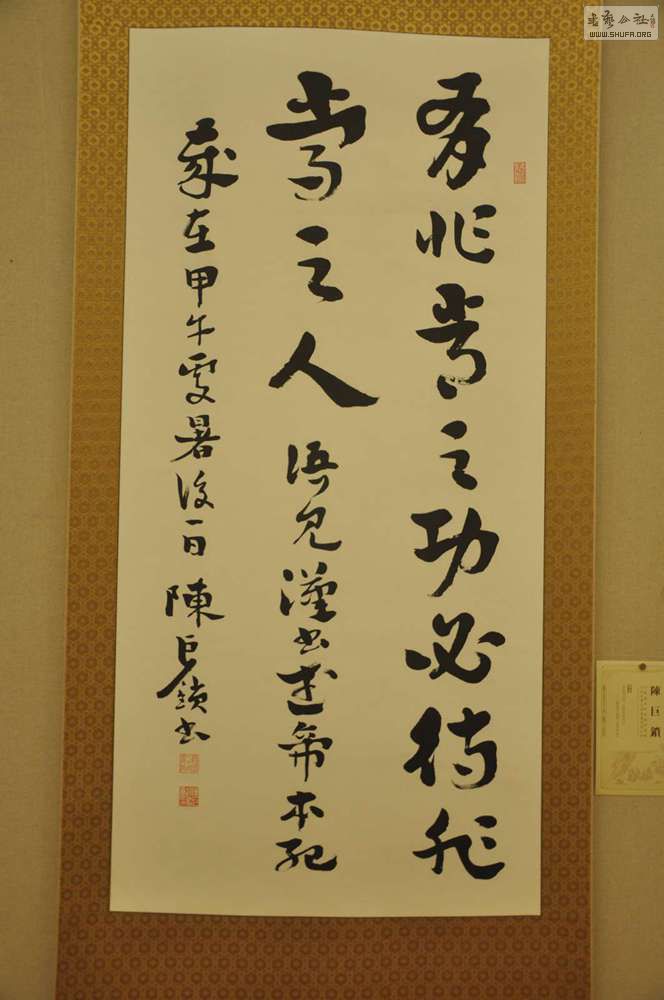 書藝公社
WWW.SHUFA.ORG
有非常之功必待非
常之人 語見漢書武帝本紀
歲在甲午處暑後一日 陳巨鎖書
陳巨鎖